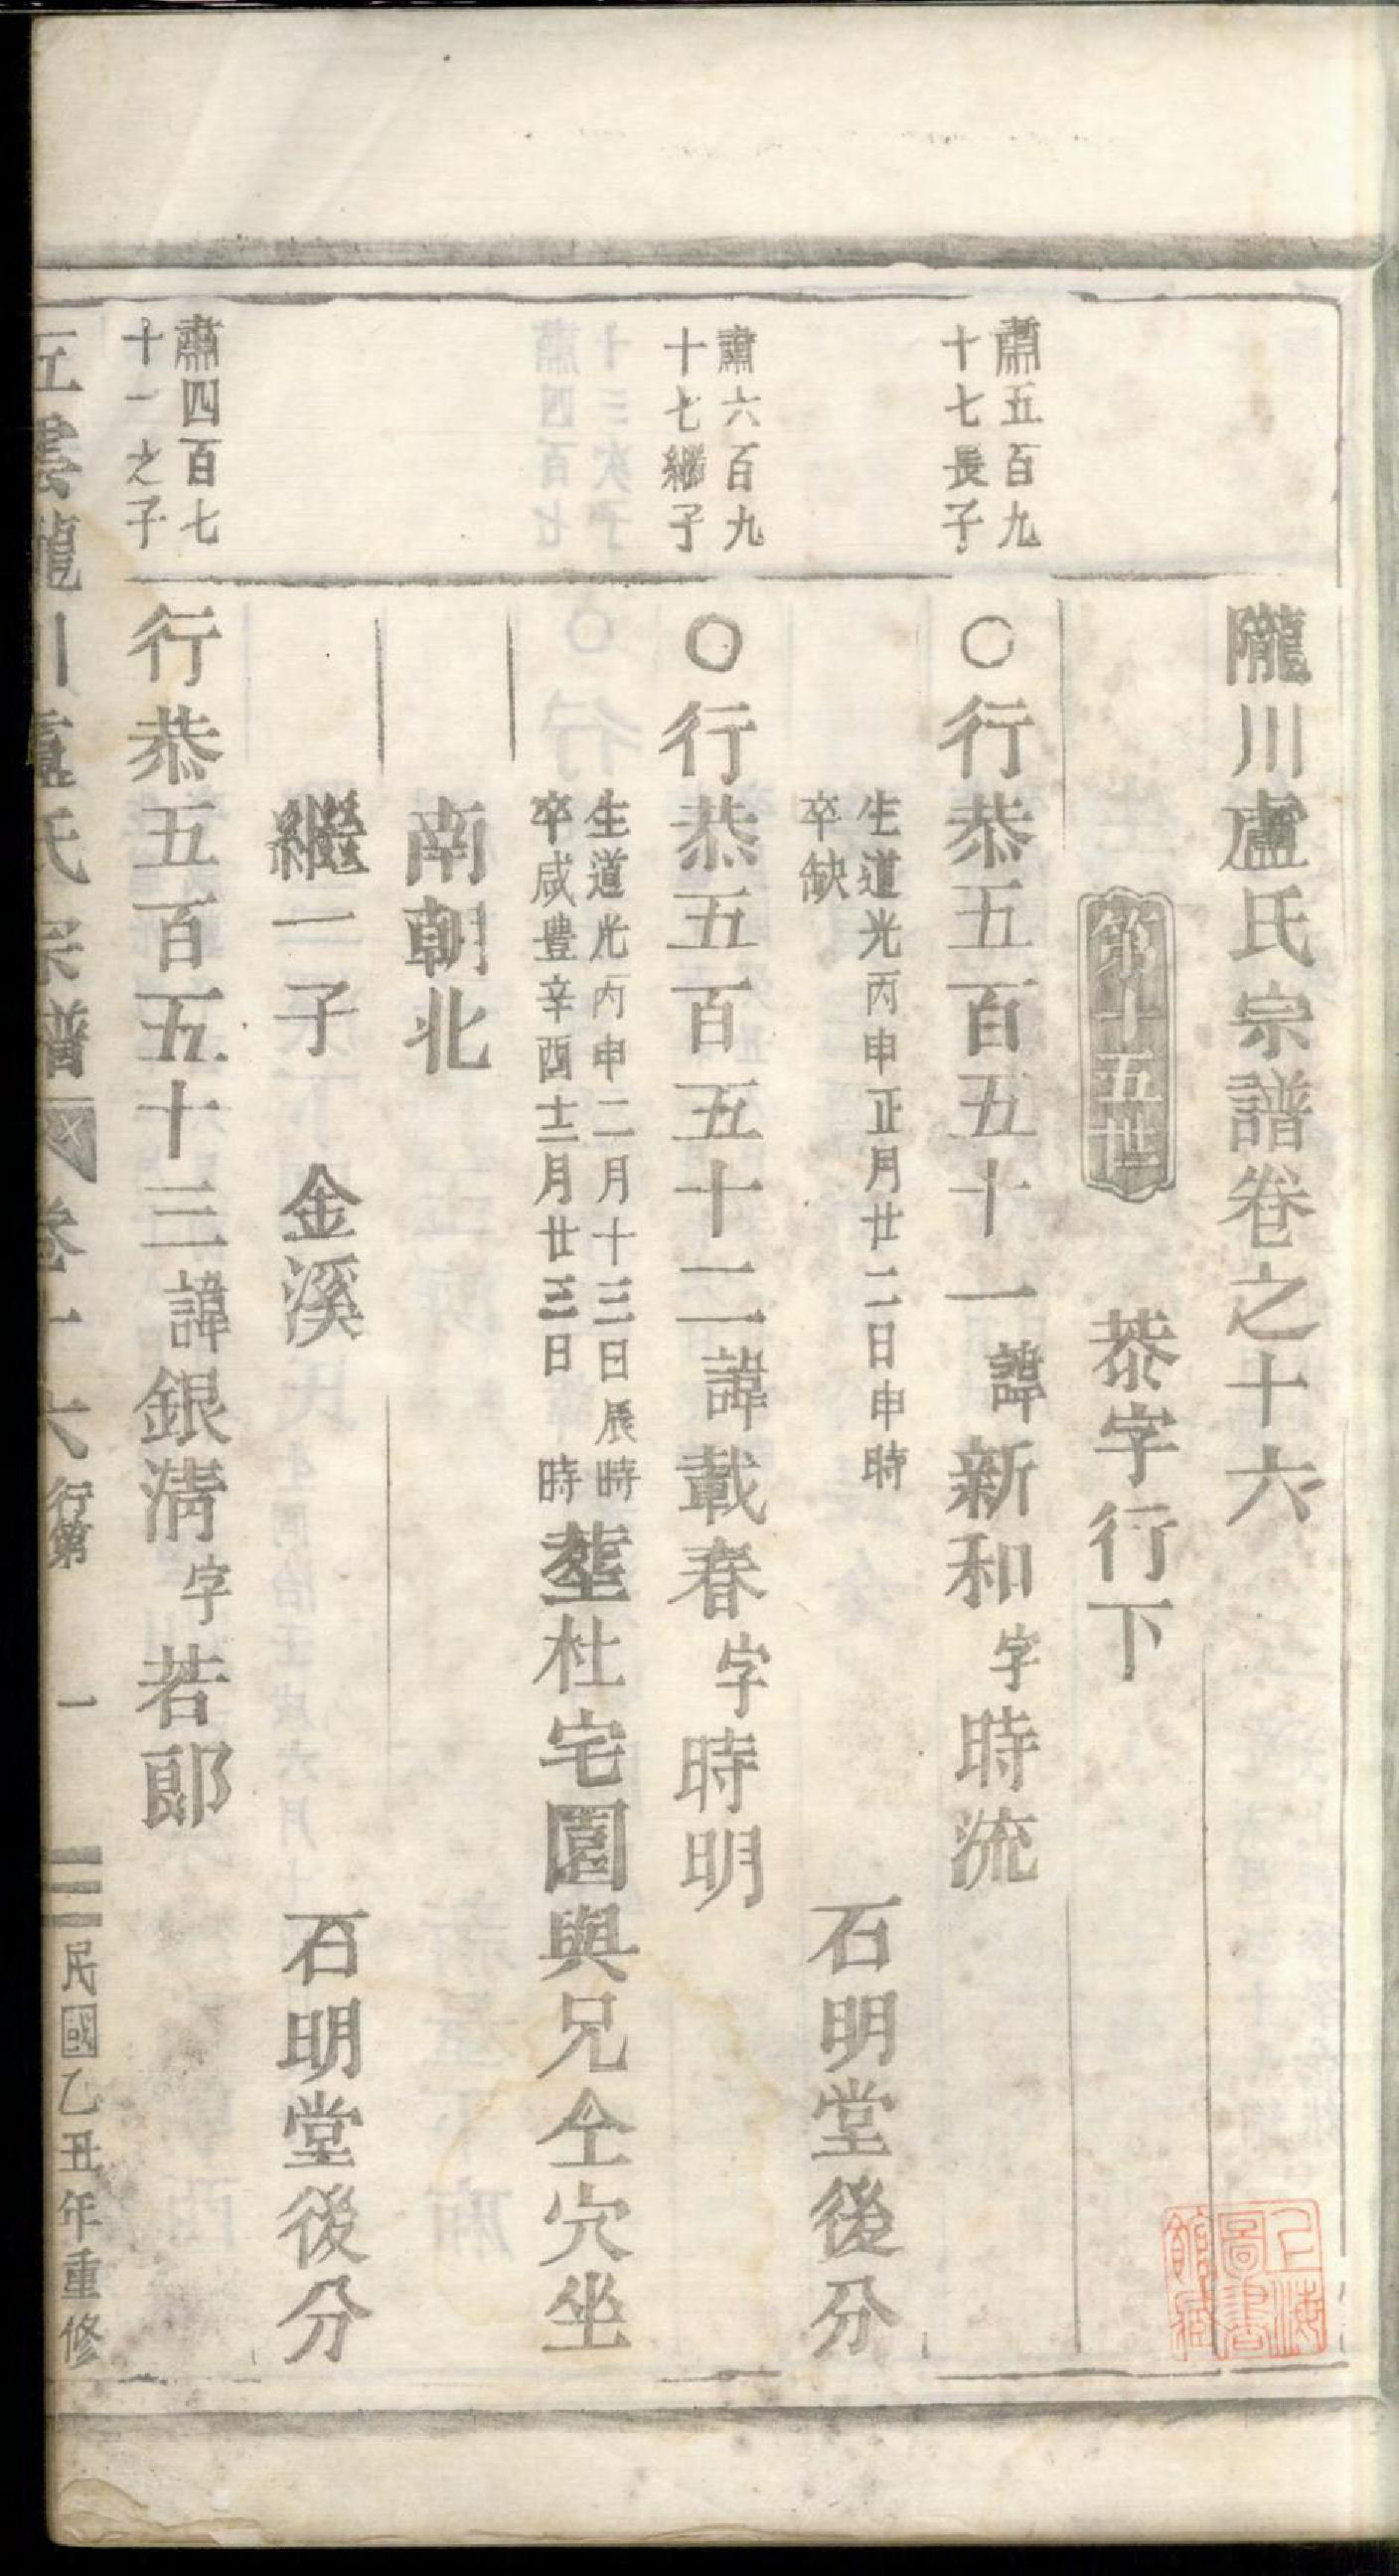 隴川盧氏宗譜卷之十六
第十五世
恭字行下
肅五百九
十七長子
〇行恭五百五十一諱新和字時流
生道光丙申正月廿二日申時
卒缺
石明堂後分
肅六百九
十七繼子
〇行恭五百五十二諱載春字時明
生道光丙申二月十三日辰時
卒咸豊辛酉十二月廿三日時
塟杜宅園與兄仝穴坐
南朝北
繼一子 金溪
石明堂後分
肅四百七
十一之子
行恭五百五十三諱銀淸字若郎
五雲隴川盧氏宗譜 卷十六 行第 一 民國乙丑年重修
上海
圖書
館藏